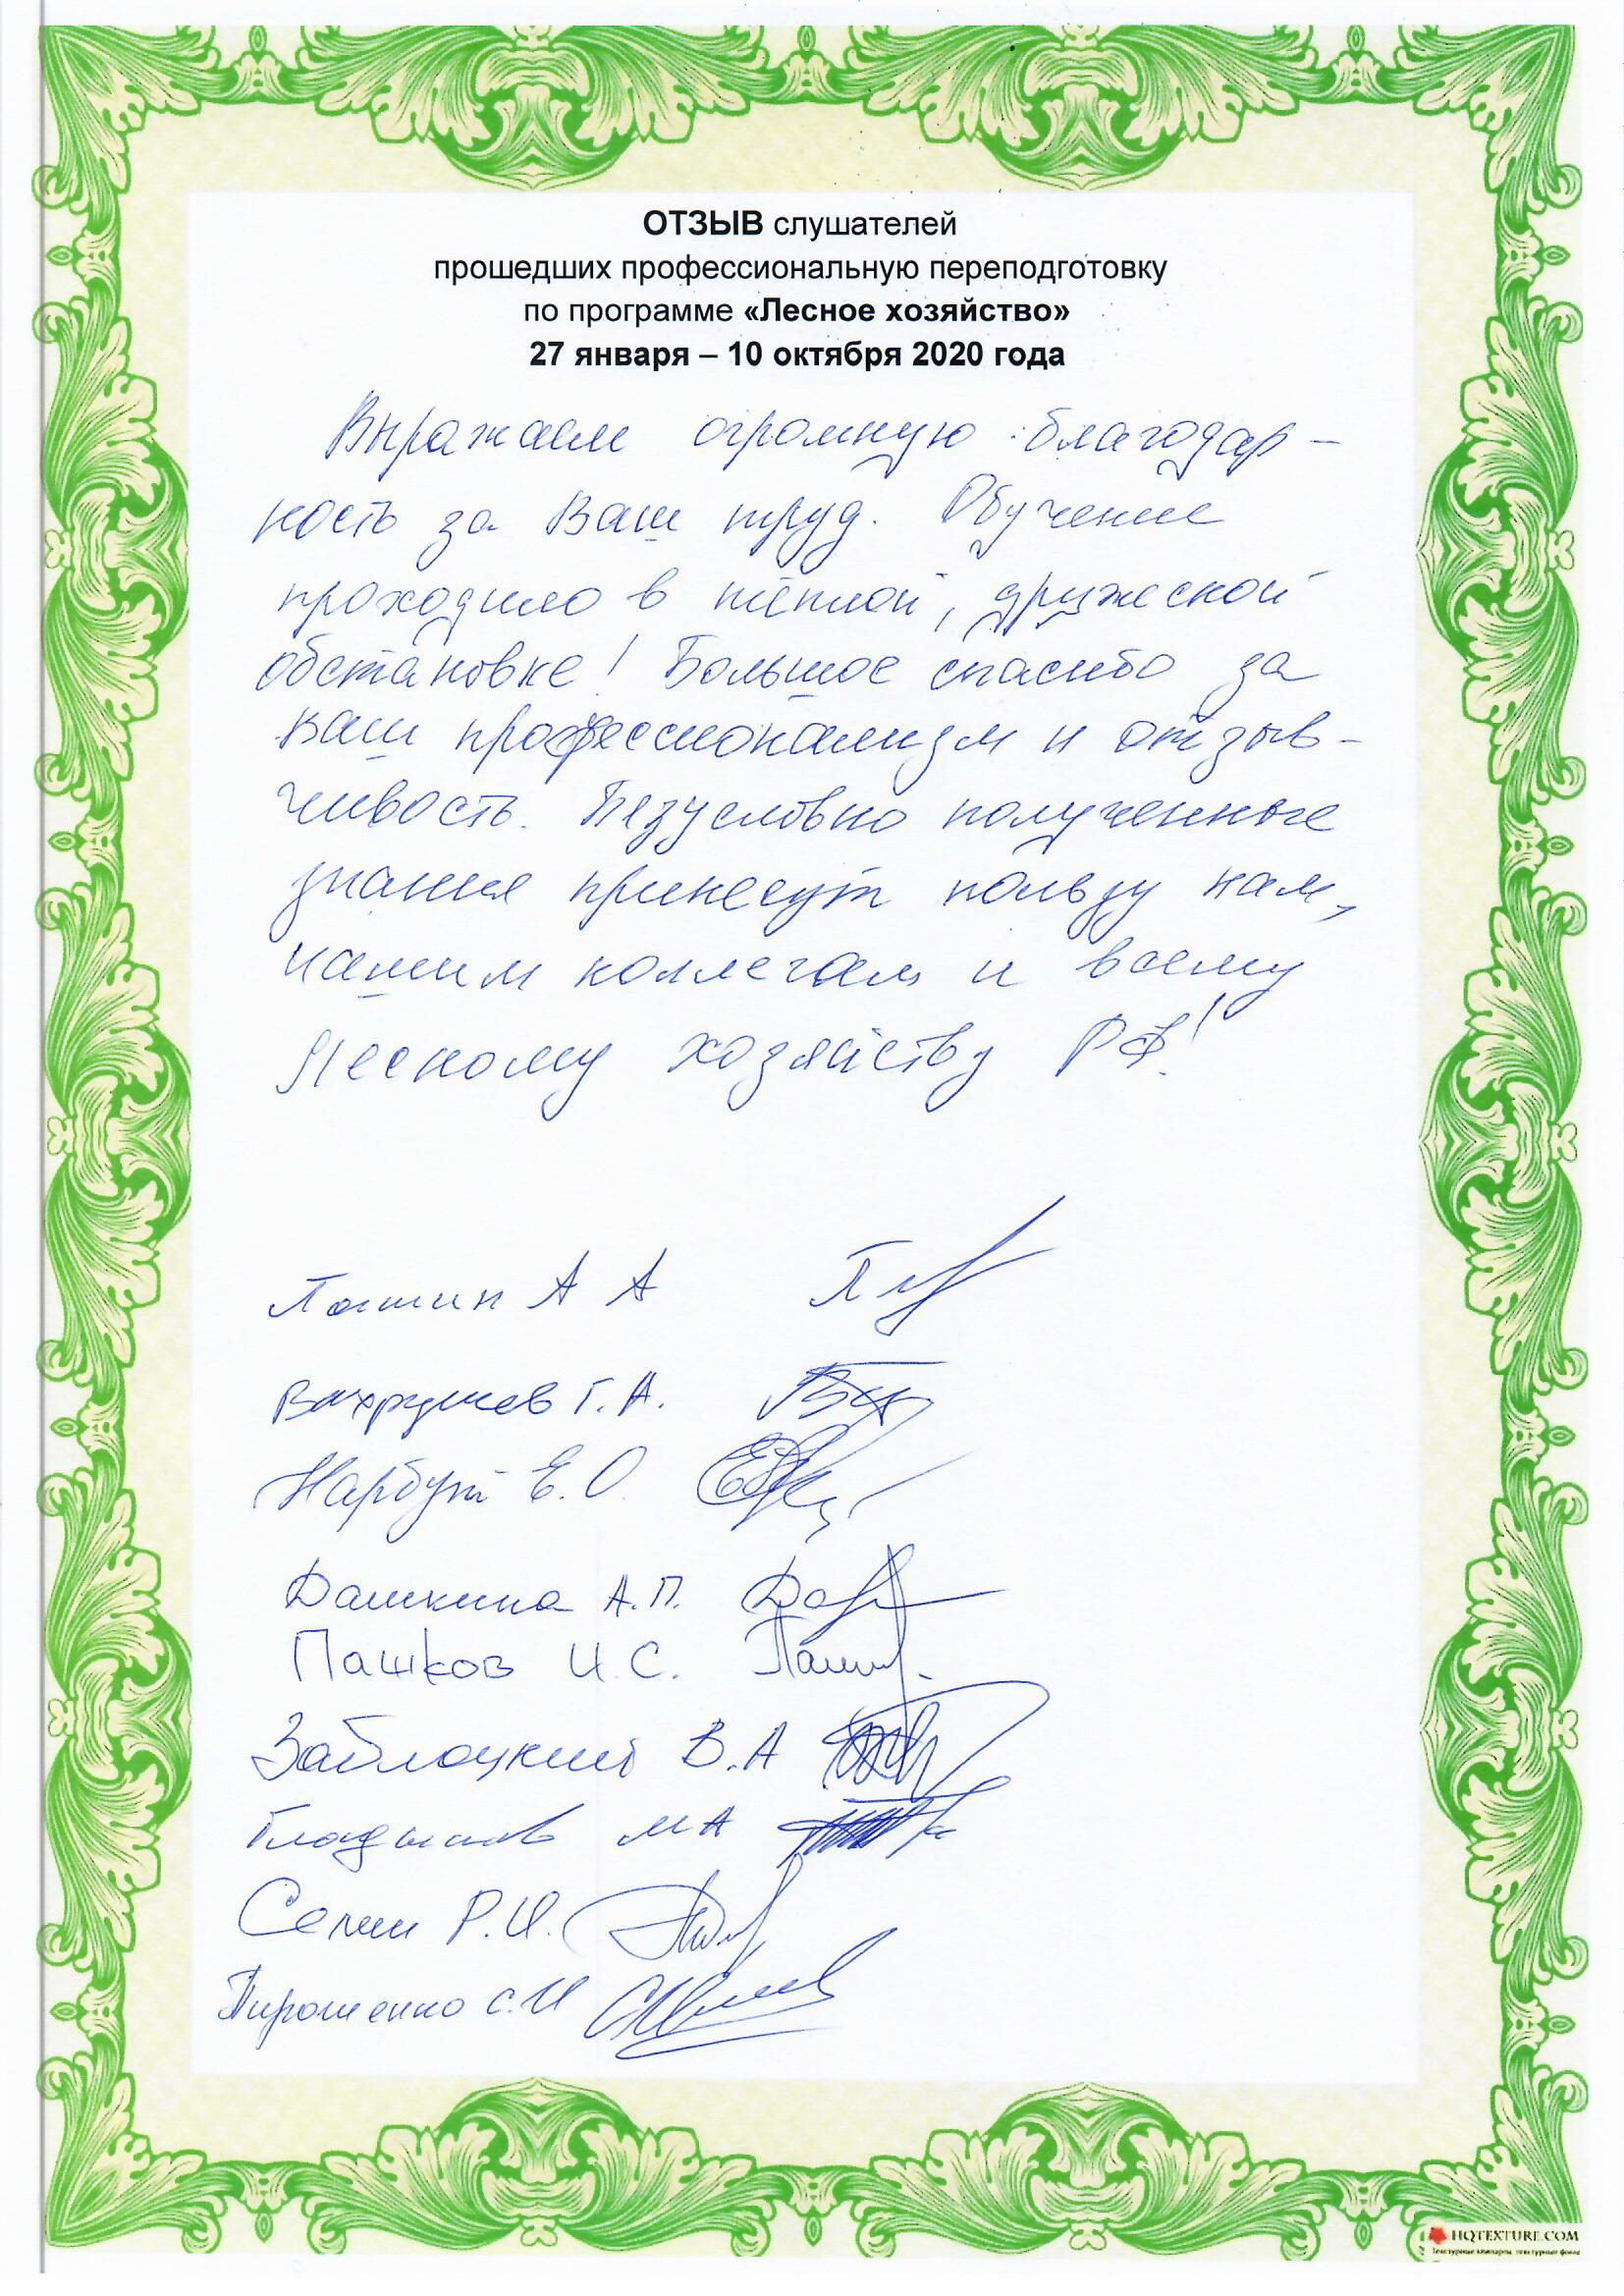 ОТЗЫВ слушателей
прошедших профессиональную переподготовку
по программе «Лесное хозяйство»
27 января – 10 октября 2020 года
Выражаем огромную благодар-
ность за Ваш труд. Обучение
проходило в тёплой, дружеской
обстановке! Большое спасибо за
Ваш профессионализм и отзыв-
чивость. Безусловно полученные
знания принесут пользу нам,
нашим коллегам и всему
Лесному хозяйству РФ!
А А
Вахрушев Г. А.
Нарбут Е. О.
Дашкина А.П.
Пашков И.С.
Заблоцкий В.А
МА
Р.И.
Пирошенко С.И
HQTEXTURE.COM